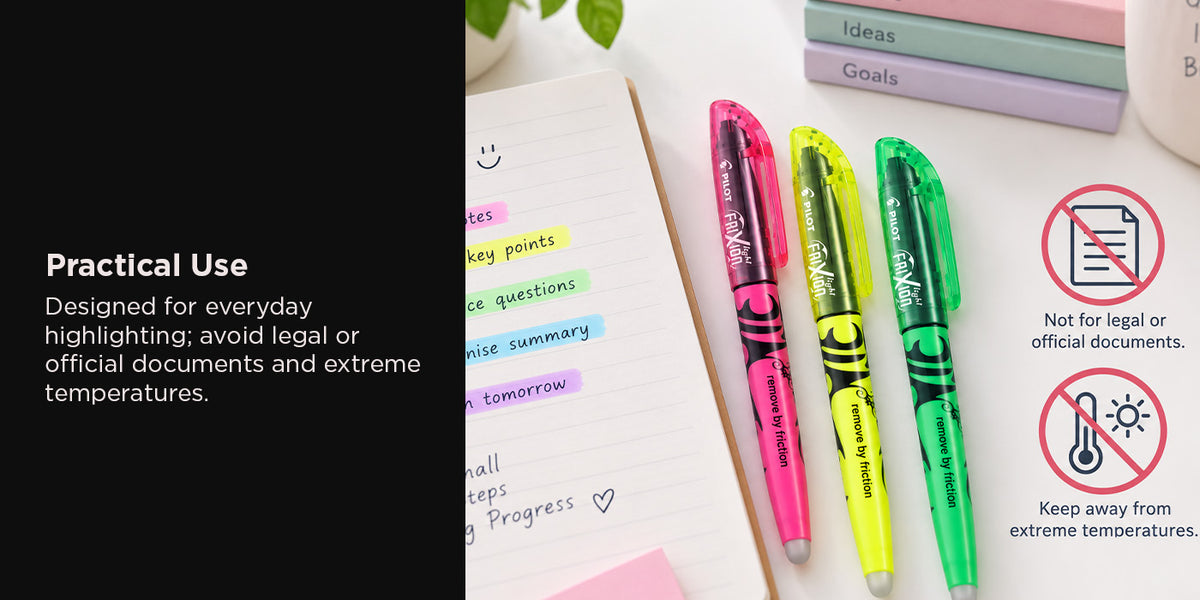 Practical Use
Designed for everyday
highlighting; avoid legal or
official documents and extreme
temperatures.
key points
questions
summary
tomorrow
Progress
Ideas
Goals
PILOT
FRIXION light
remove by friction
PILOT
FRIXION light
remove by friction
PILOT
FRIXION light
remove by friction
Not for legal or
official documents.
Keep away from
extreme temperatures.